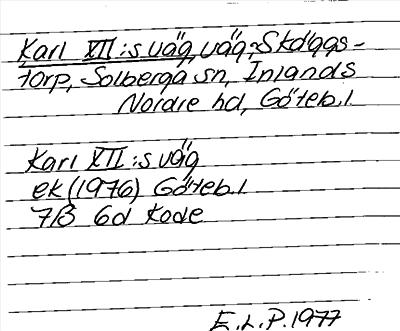 Karl XII:s väg, väg; Skäggs-
torp, Solberga sn, Inlands
Nordre hd, Göteb.l.
Karl XII:s väg
ek (1976) Göteb.l
7B 6d Kode
E.L.P. 1977